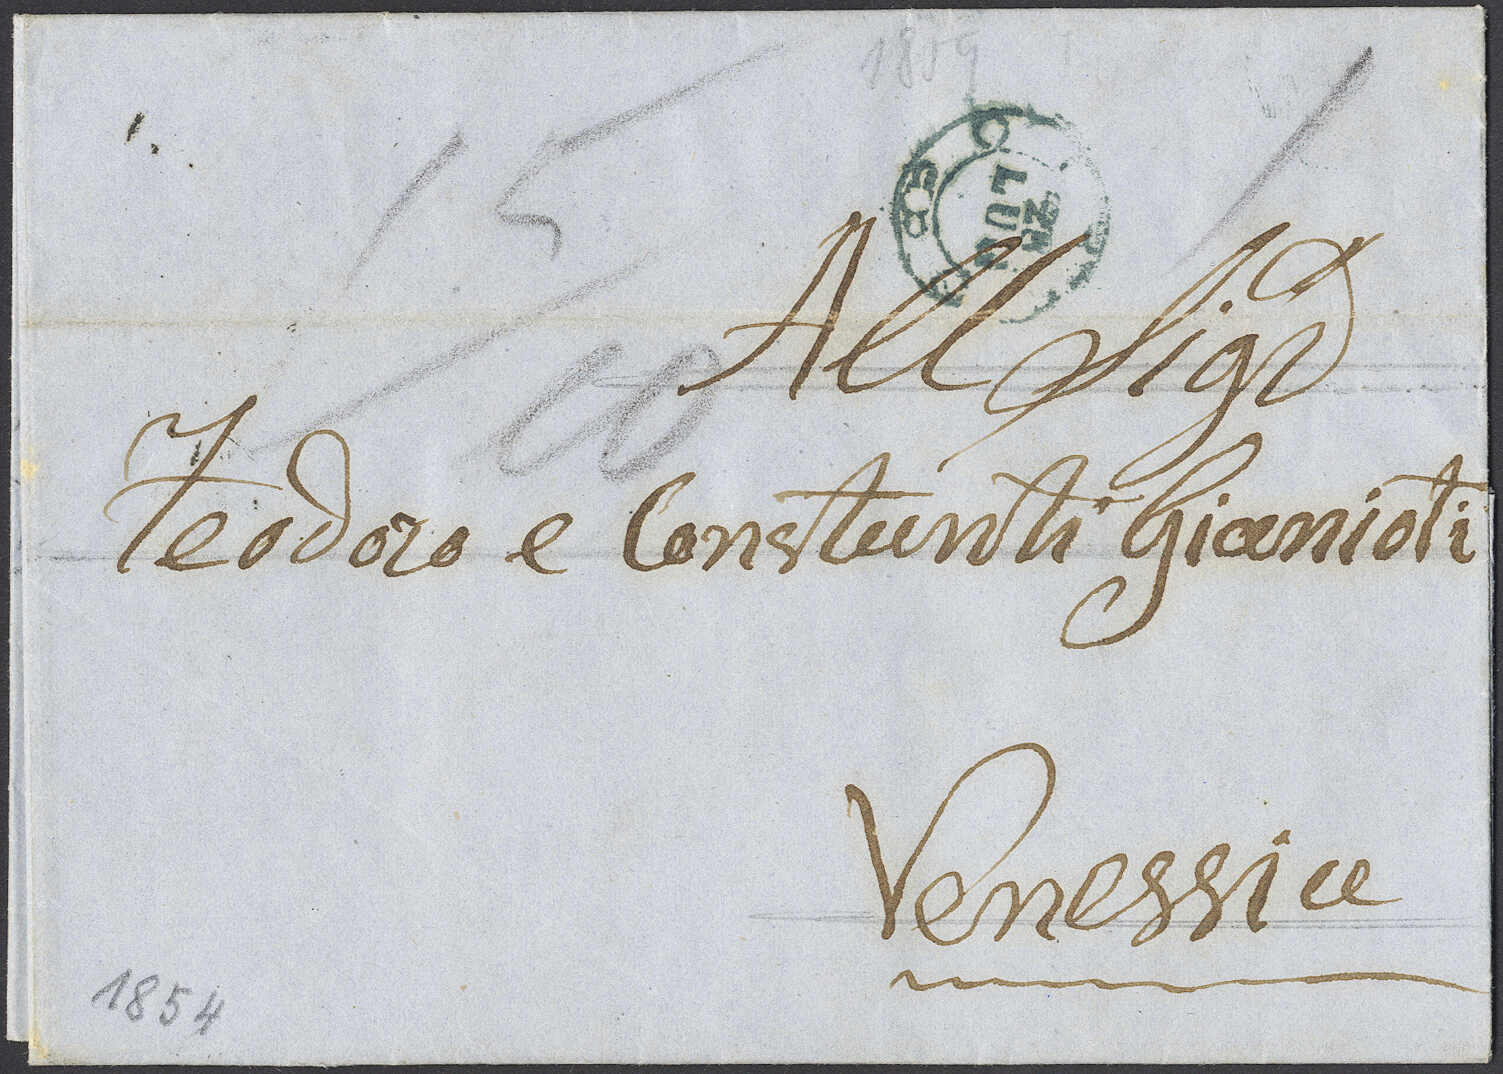 1859
15
LUG
All Sigr
Teodoro e Constanti Gianioti
Venessia
1854